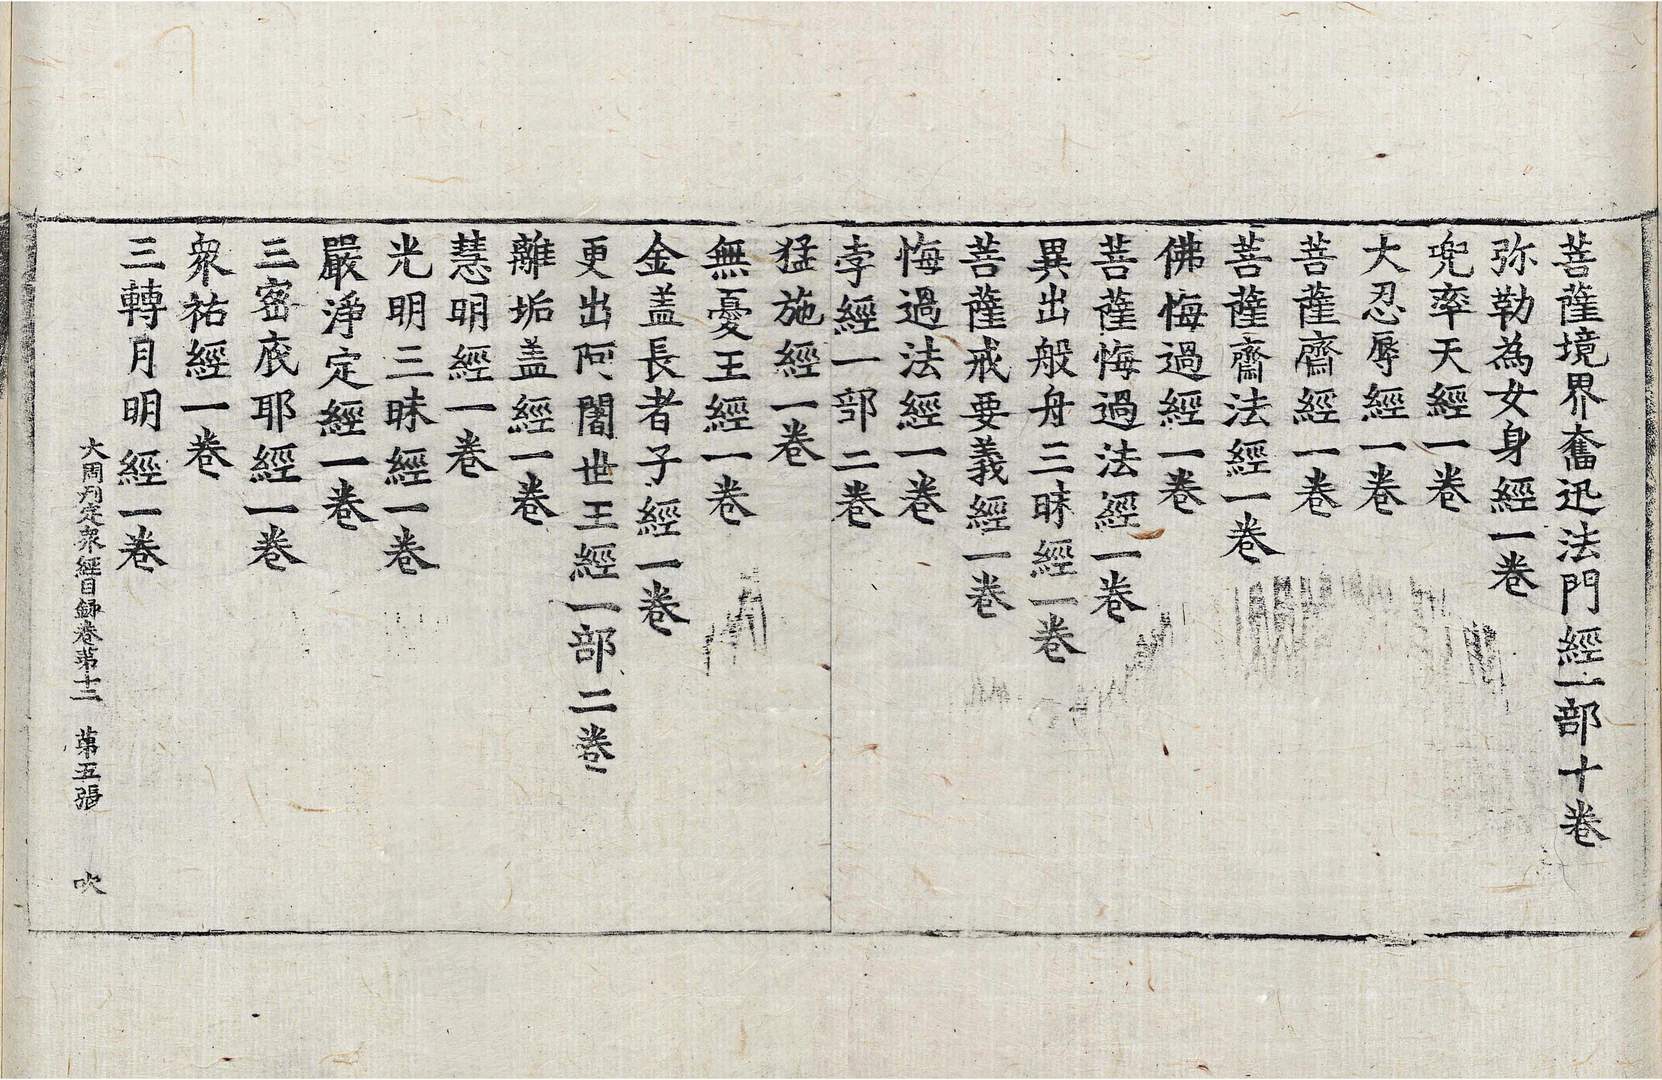 菩薩境界奮迅法門經一部十卷
弥勒為女身經一卷
兜率天經一卷
大忍辱經一卷
菩薩齋經一卷
菩薩齋法經一卷
佛悔過經一卷
菩薩悔過法經一卷
異出般舟三昧經一卷
菩薩戒要義經一卷
悔過法經一卷
孛經一部二卷
猛施經一卷
無憂王經一卷
金盖長者子經一卷
更出阿闍世王經一部二卷
離垢盖經一卷
慧明經一卷
光明三昧經一卷
嚴淨定經一卷
三密底耶經一卷
衆祐經一卷
三轉月明經一卷
大周刊定衆經目録卷苐十二 苐五張 吹